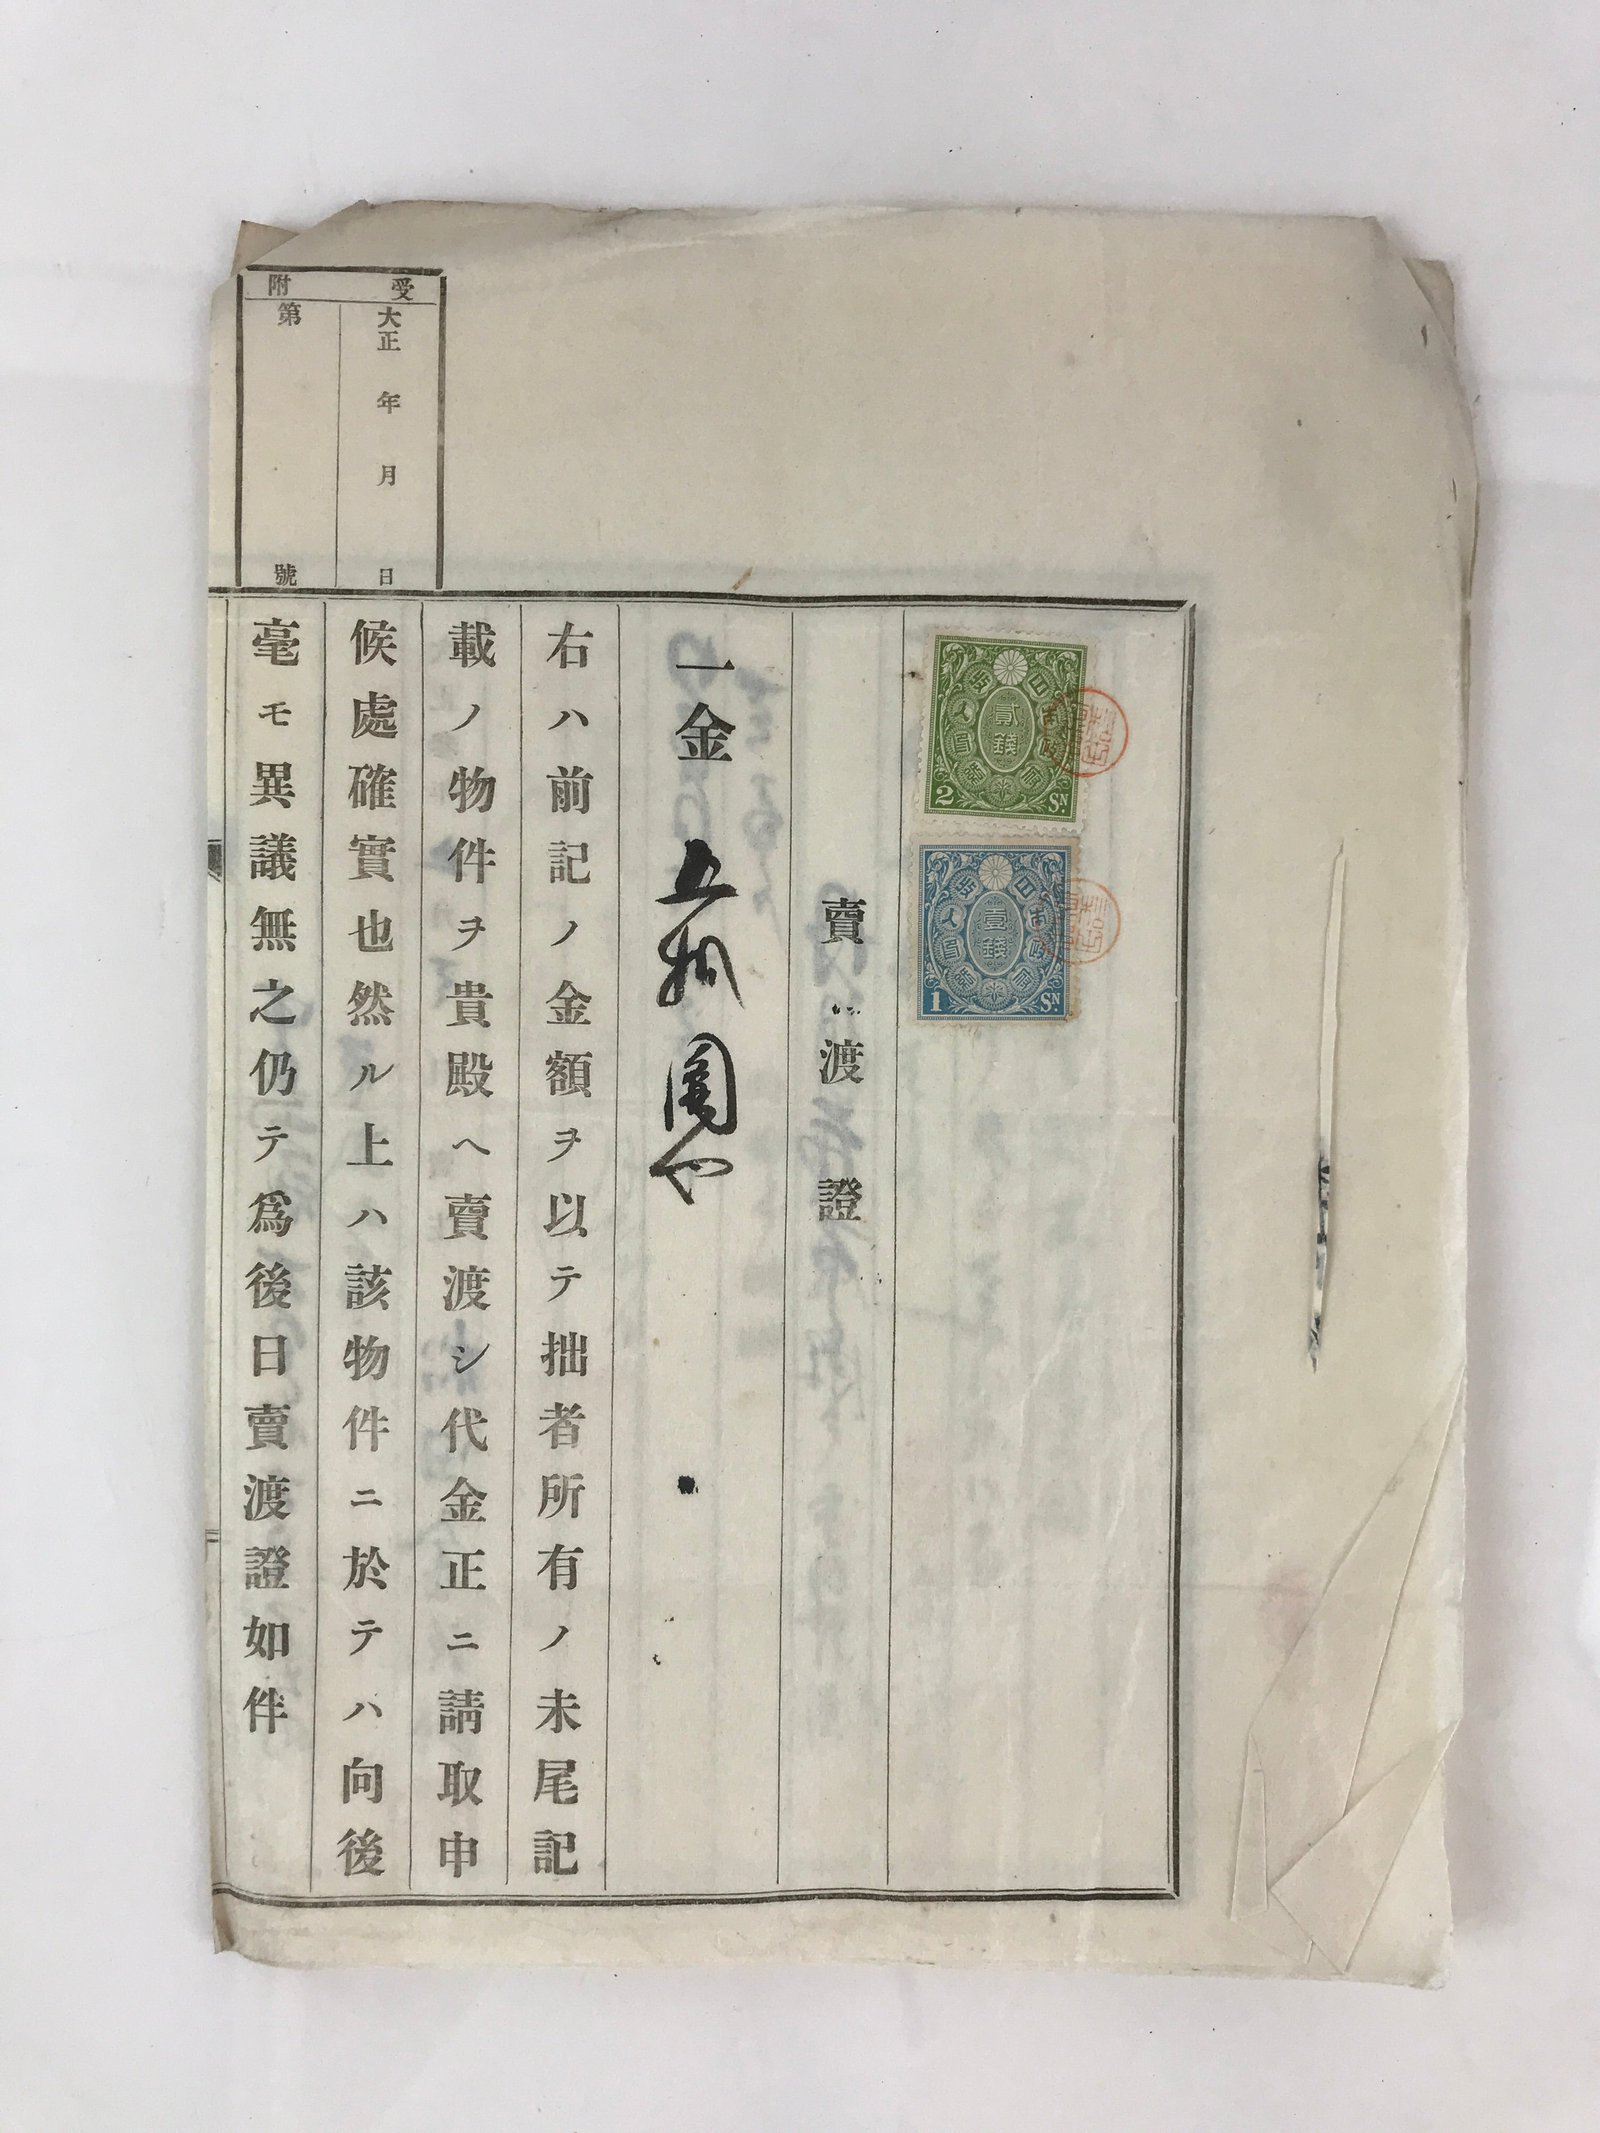 貳錢
2 SN.
壹錢
1 SN.
賣渡證
一金 五拾圓也
右ハ前記ノ金額ヲ以テ拙者所有ノ未尾記
載ノ物件ヲ貴殿ヘ賣渡シ代金正ニ請取申
候處確實也然ル上ハ該物件ニ於テハ向後
毫モ異議無之仍テ爲後日賣渡證如件
受附
大正 年 月 日
第 號